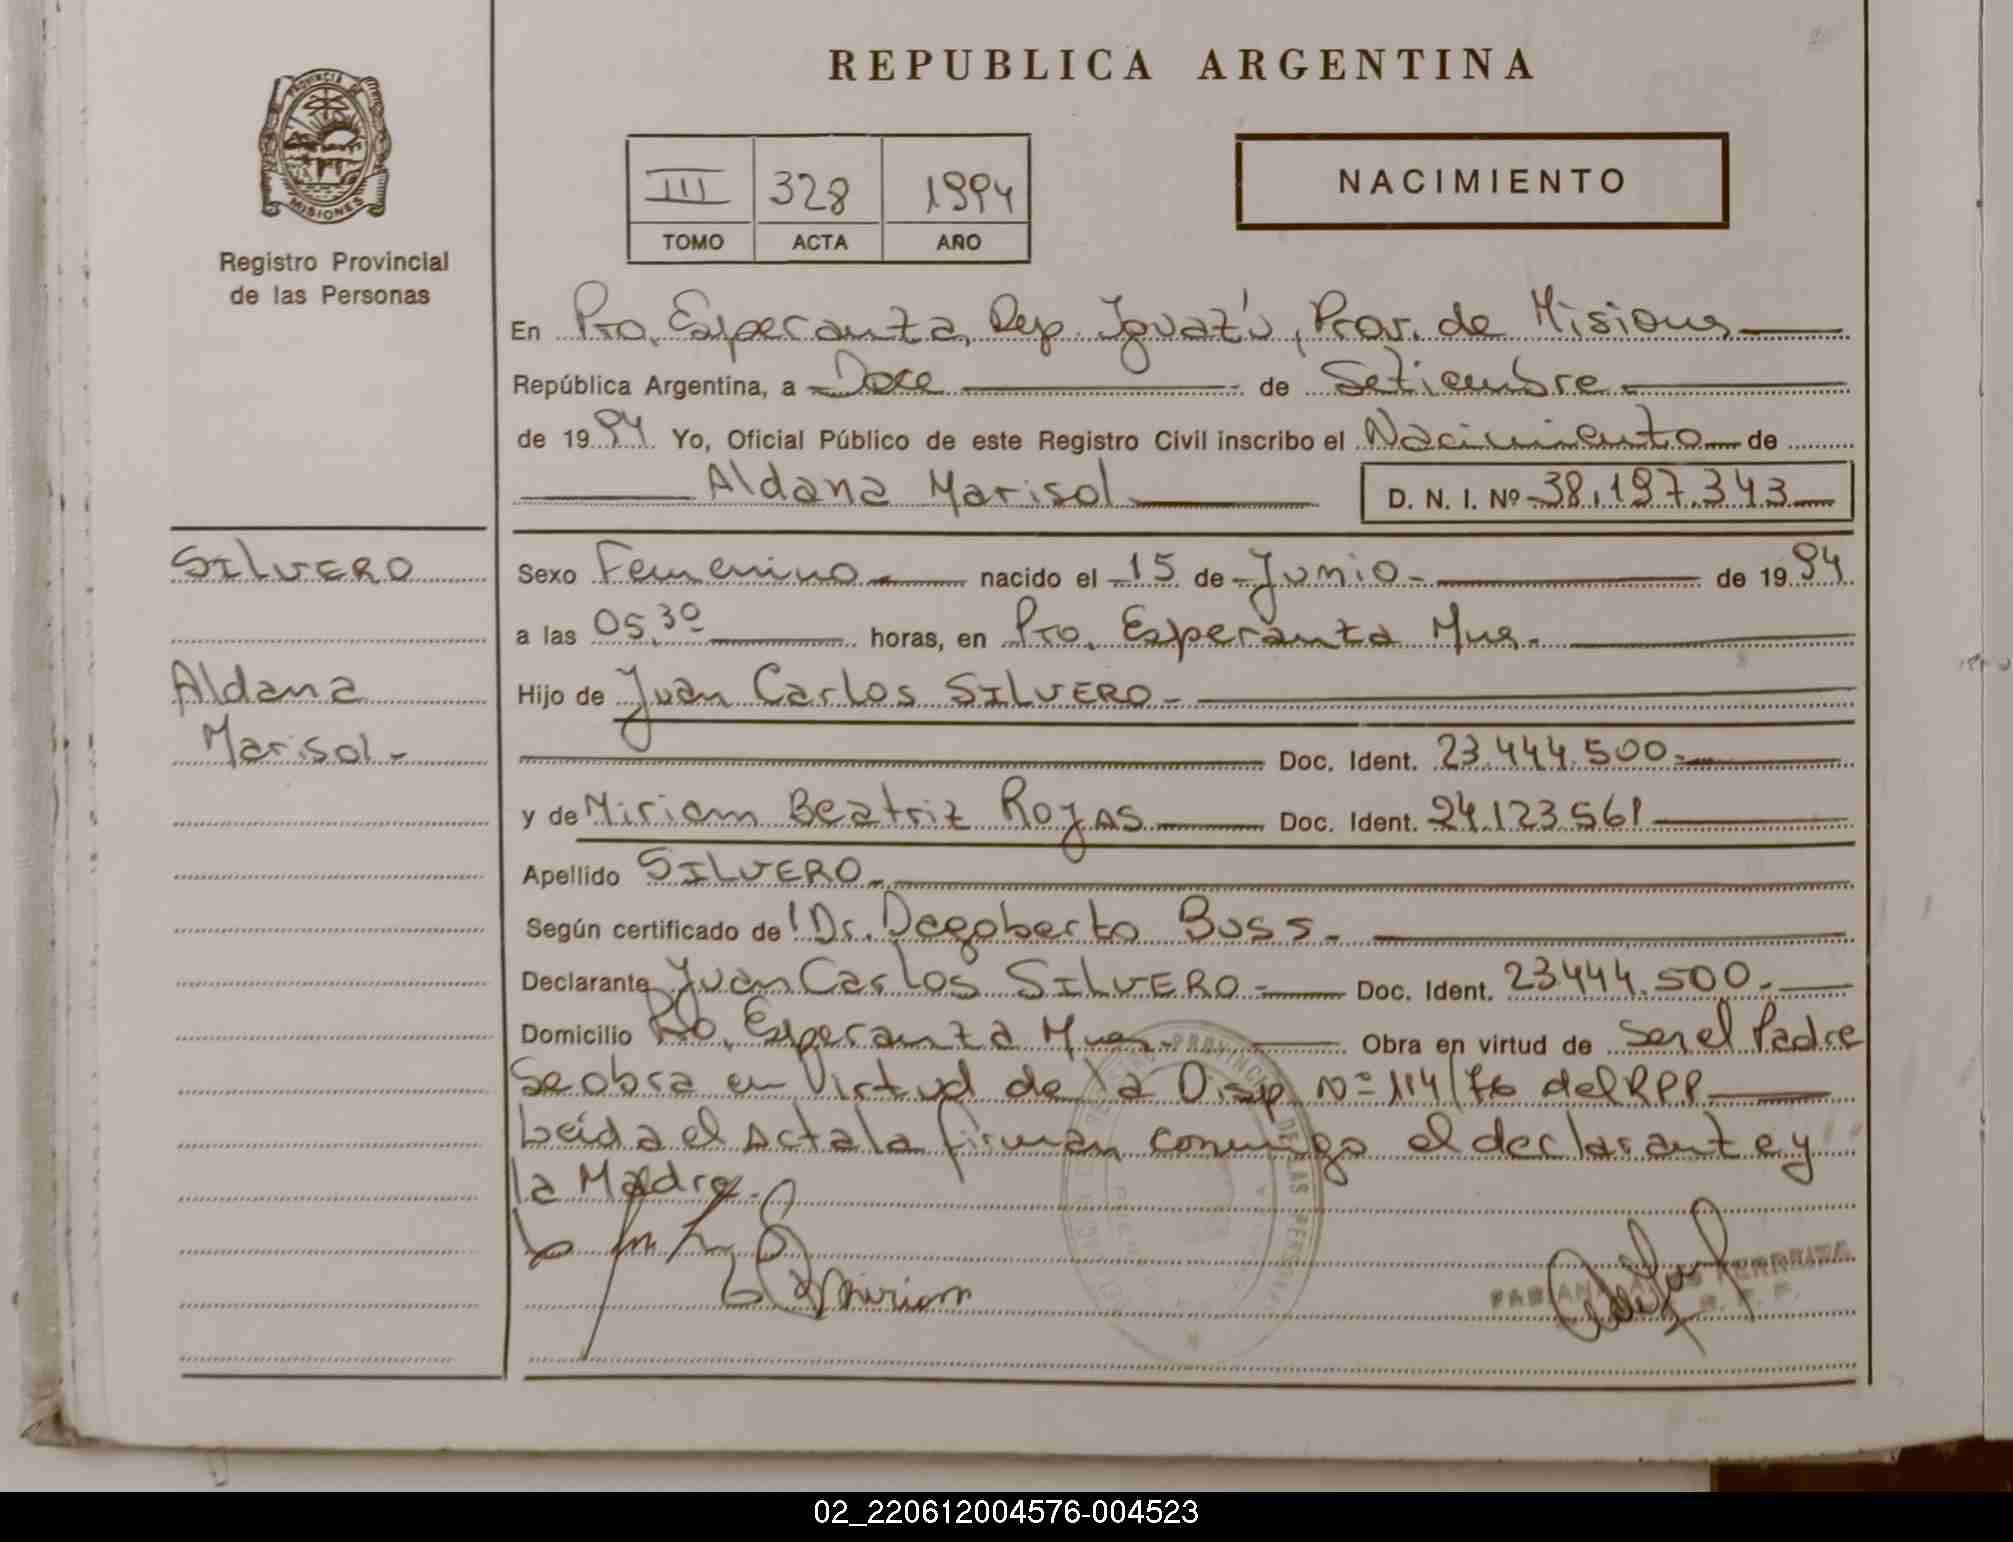 REPUBLICA ARGENTINA
PROVINCIA DE MISIONES
Registro Provincial
de las Personas
III 328 1994
TOMO ACTA AÑO
NACIMIENTO
En Pto. Esperanza, Dep. Iguazú, Prov. de Misiones
República Argentina, a Doce de Setiembre
de 1994 Yo, Oficial Público de este Registro Civil inscribo el Nacimiento de
Aldana Marisol D. N. I. Nº 38.197.343
SILVERO
Aldana
Marisol-
Sexo Femenino nacido el 15 de Junio de 1994
a las 05,30 horas, en Pto. Esperanza Mnes.
Hijo de Juan Carlos SILVERO-
Doc. Ident. 23.444.500-
y de Miriam Beatriz ROJAS Doc. Ident. 24.123.561
Apellido SILVERO-
Según certificado de Dr. Dagoberto Buss-
Declarante Juan Carlos SILVERO- Doc. Ident. 23444.500.-
Domicilio Pto. Esperanza Mnes- Obra en virtud de Ser el Padre
Se obra en Virtud de la Disp Nº 114/76 del RPP
Leída el Acta la firman conmigo el declarante y
la Madre.
Miriam
FERREIRA
02_220612004576-004523